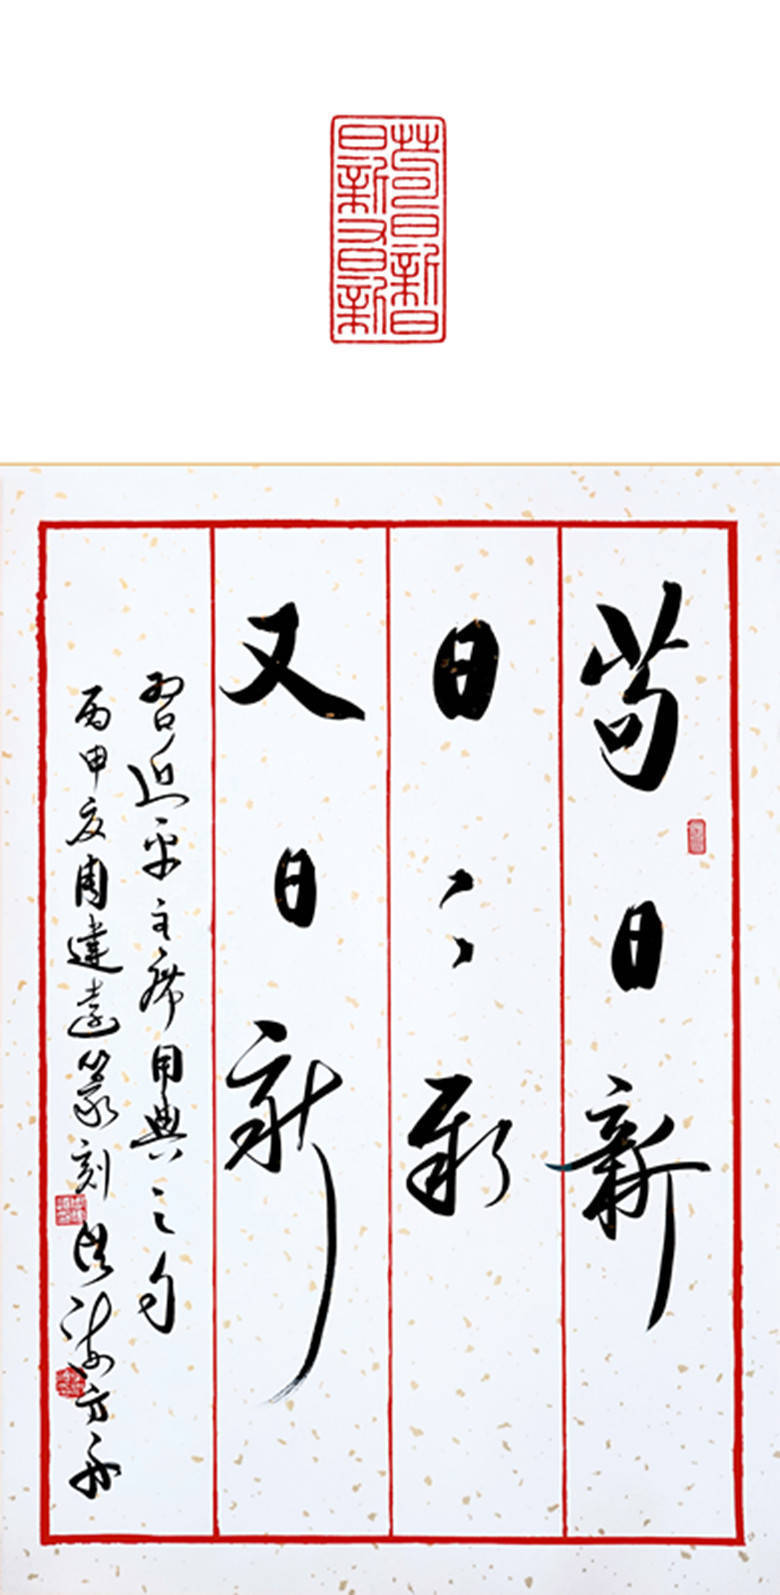 苟日新日
日新又日新
苟日新
日〻新
又日新
习近平主席用典之句
丙申夏周建远篆刻